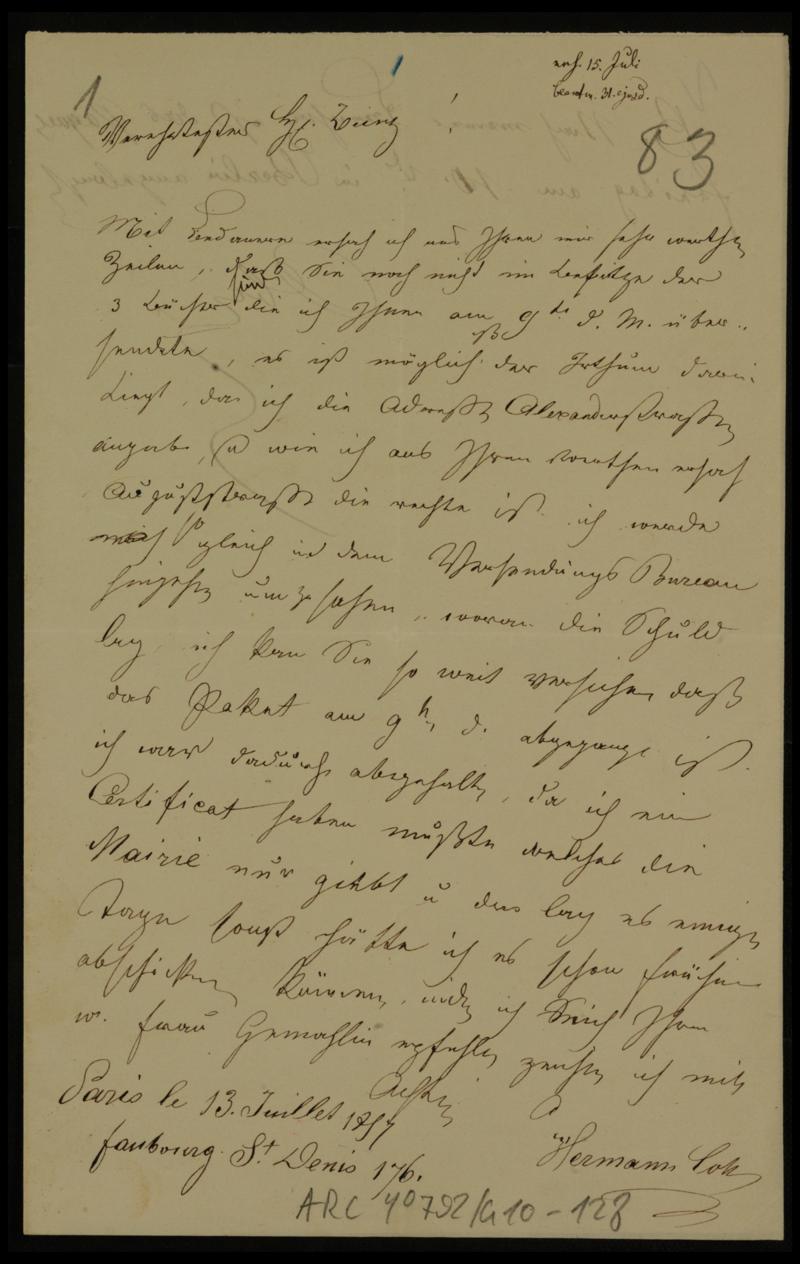 erh. 15. Juli
beantw. 31. ejusd.
1
83
Verehrtester H. Zunz !
Mit Bedauern ersah ich aus Ihren mir sehr werthen
Zeilen, daß Sie noch nicht im Besitze der
3 Bücher sind die ich Ihnen am 9 d. M. über
sendete, es ist möglich das der Irthum darin
liegt, das ich die Adresse Alexanderstrasse
angab, u wie ich aus Ihren Werthen ersah
Auguststrasse die rechte ist. ich werde
so gleich in dem Versendungs Bureau
hingehen um zu sehen, woran die Schuld
lag, ich kan Sie so weit versichern daß
das Paket am 9 d. abgegangen ist.
ich war dadurch abgehalten, da ich ein
Certificat haben mußte welches die
Mairie nur giebt u das lag es einige
Tage sonst hätte ich es schon früher
abschicken können, ich Ihnen
w. Frau Gemahlin empfehle, zeichne ich mit
Achtung
Paris le 13. Juillet 1857
faubourg St Denis 176.
Hermann
ARC 4o 792/G10-128